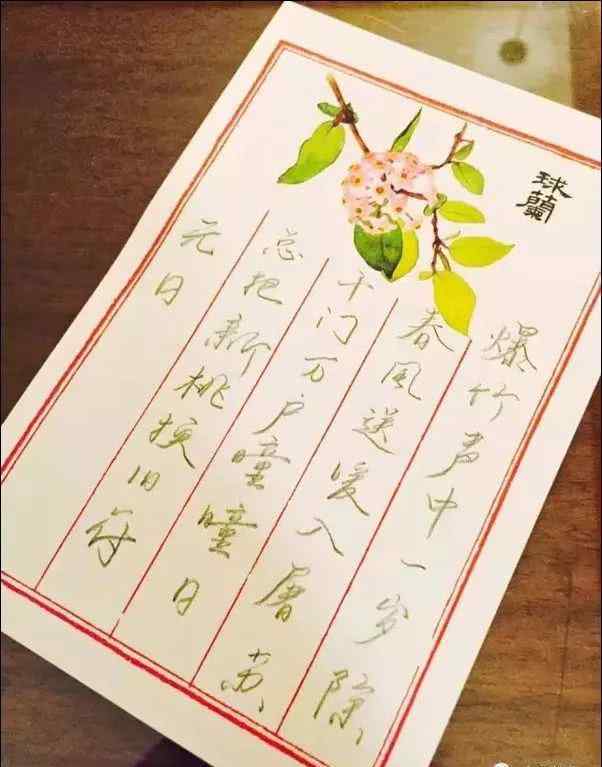 球蘭
爆竹声中一岁除
春风送暖入屠苏
千门万户曈曈日
总把新桃换旧符
元日